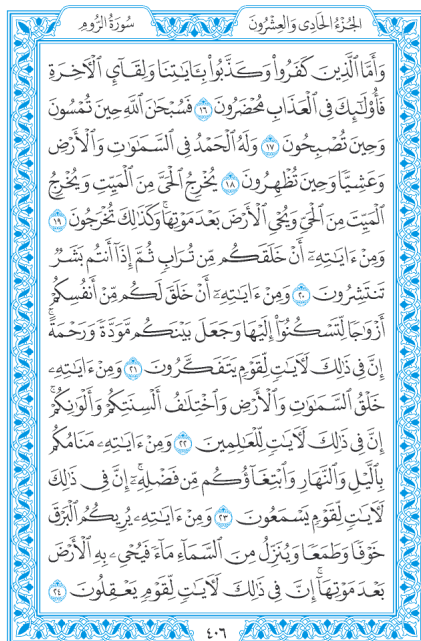 الجُزْءُ الحَادِى وَالعِشْرُونَ
سُورَةُ الرُّومِ
وَأَمَّا ٱلَّذِينَ كَفَرُوا۟ وَكَذَّبُوا۟ بِـَٔايَٰتِنَا وَلِقَآئِ ٱلْـَٔاخِرَةِ
فَأُو۟لَٰٓئِكَ فِى ٱلْعَذَابِ مُحْضَرُونَ ١٦ فَسُبْحَٰنَ ٱللَّهِ حِينَ تُمْسُونَ
وَحِينَ تُصْبِحُونَ ١٧ وَلَهُ ٱلْحَمْدُ فِى ٱلسَّمَٰوَٰتِ وَٱلْأَرْضِ
وَعَشِيًّا وَحِينَ تُظْهِرُونَ ١٨ يُخْرِجُ ٱلْحَىَّ مِنَ ٱلْمَيِّتِ وَيُخْرِجُ
ٱلْمَيِّتَ مِنَ ٱلْحَىِّ وَيُحْىِ ٱلْأَرْضَ بَعْدَ مَوْتِهَا ۚ وَكَذَٰلِكَ تُخْرَجُونَ ١٩
وَمِنْ ءَايَٰتِهِۦٓ أَنْ خَلَقَكُم مِّن تُرَابٍ ثُمَّ إِذَآ أَنتُم بَشَرٌ
تَنتَشِرُونَ ٢٠ وَمِنْ ءَايَٰتِهِۦٓ أَنْ خَلَقَ لَكُم مِّنْ أَنفُسِكُمْ
أَزْوَٰجًا لِّتَسْكُنُوٓا۟ إِلَيْهَا وَجَعَلَ بَيْنَكُم مَّوَدَّةً وَرَحْمَةً ۚ
إِنَّ فِى ذَٰلِكَ لَـَٔايَٰتٍ لِّقَوْمٍ يَتَفَكَّرُونَ ٢١ وَمِنْ ءَايَٰتِهِۦ
خَلْقُ ٱلسَّمَٰوَٰتِ وَٱلْأَرْضِ وَٱخْتِلَٰفُ أَلْسِنَتِكُمْ وَأَلْوَٰنِكُمْ ۚ
إِنَّ فِى ذَٰلِكَ لَـَٔايَٰتٍ لِّلْعَٰلِمِينَ ٢٢ وَمِنْ ءَايَٰتِهِۦ مَنَامُكُم
بِٱلَّيْلِ وَٱلنَّهَارِ وَٱبْتِغَآؤُكُم مِّن فَضْلِهِۦٓ ۚ إِنَّ فِى ذَٰلِكَ
لَـَٔايَٰتٍ لِّقَوْمٍ يَسْمَعُونَ ٢٣ وَمِنْ ءَايَٰتِهِۦ يُرِيكُمُ ٱلْبَرْقَ
خَوْفًا وَطَمَعًا وَيُنَزِّلُ مِنَ ٱلسَّمَآءِ مَآءً فَيُحْىِۦ بِهِ ٱلْأَرْضَ
بَعْدَ مَوْتِهَآ ۚ إِنَّ فِى ذَٰلِكَ لَـَٔايَٰتٍ لِّقَوْمٍ يَعْقِلُونَ ٢٤
٤٠٦